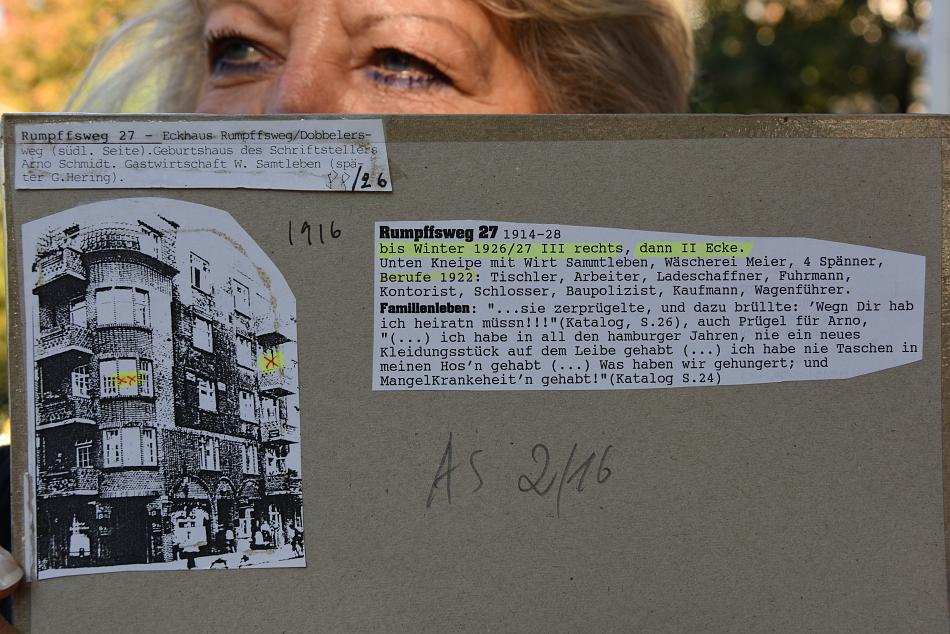 Rumpffsweg 27 - Eckhaus Rumpffsweg/Dobbelers-
weg (südl. Seite).Geburtshaus des Schriftstellers
Arno Schmidt. Gastwirtschaft W. Samtleben (spä-
ter G.Hering).
88/26
1916
Rumpffsweg 27 1914-28
bis Winter 1926/27 III rechts, dann II Ecke.
Unten Kneipe mit Wirt Sammtleben, Wäscherei Meier, 4 Spänner,
Berufe 1922: Tischler, Arbeiter, Ladeschaffner, Fuhrmann,
Kontorist, Schlosser, Baupolizist, Kaufmann, Wagenführer.
Familienleben: "...sie zerprügelte, und dazu brüllte: 'Wegn Dir hab
ich heiratn müssn!!!"(Katalog, S.26), auch Prügel für Arno,
"(...) ich habe in all den hamburger Jahren, nie ein neues
Kleidungsstück auf dem Leibe gehabt (...) ich habe nie Taschen in
meinen Hos'n gehabt (...) Was haben wir gehungert; und
MangelKrankeheit'n gehabt!"(Katalog S.24)
XX
X
AS 2/16